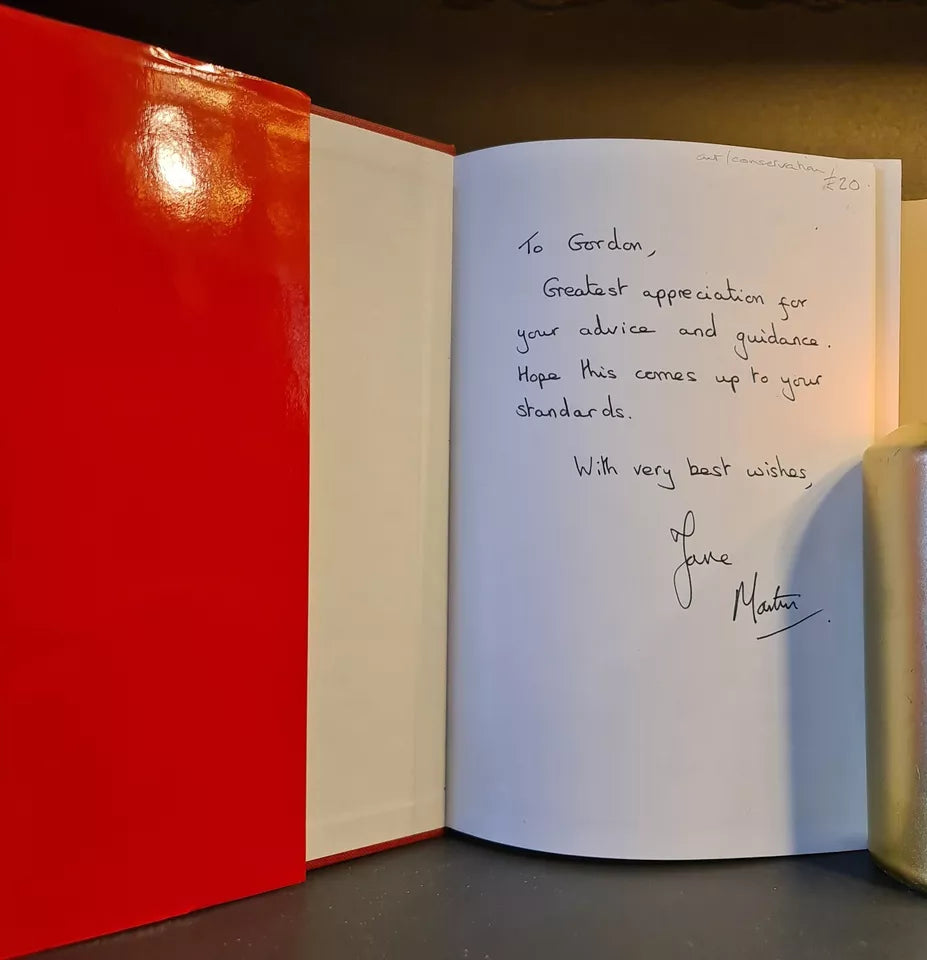 art/conservation/
£20.
To Gordon,
Greatest appreciation for
your advice and guidance.
Hope this comes up to your
standards.
With very best wishes,
Jane
Martin.